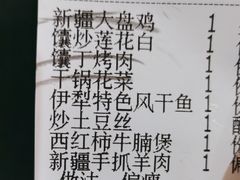 新疆大盘鸡 1
馕炒莲花白 1
馕丁烤肉 1
干锅花菜 1
伊犁特色风干鱼 1
炒土豆丝 1
西红柿牛腩煲 1
新疆手抓羊肉 1
做法 偏瘦